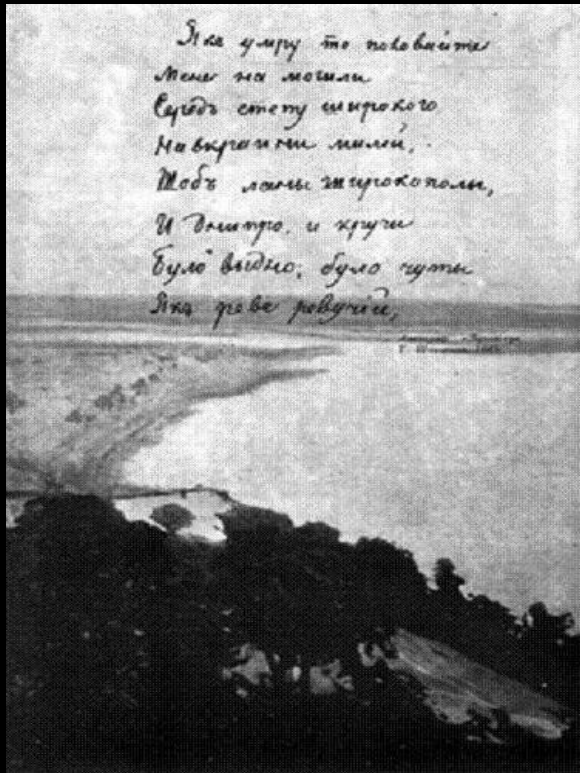 Якъ умру то поховайте
Мене на могили
Середъ степу широкого
На вкраини милей,
Щобъ ланы широкополы,
И Днипро, и кручи
Було выдно; було чуты
Якъ реве ревучій,